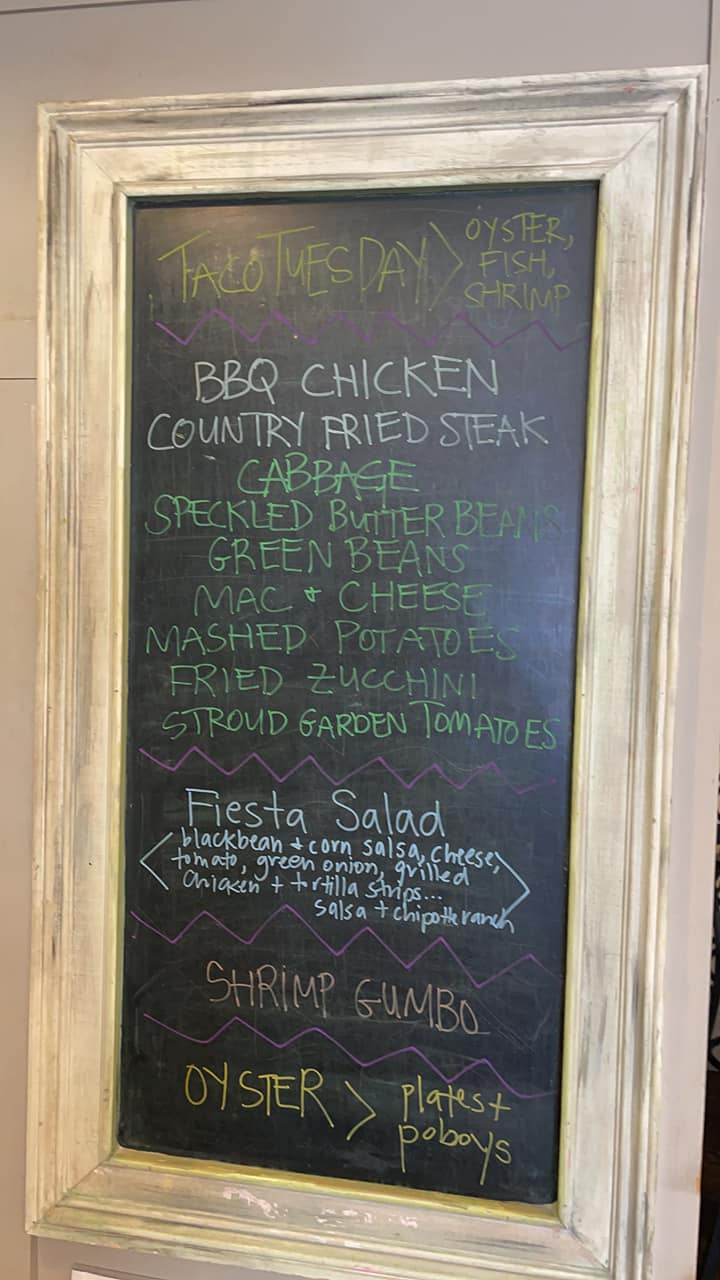 TACO TUESDAY > OYSTER,
FISH,
SHRIMP
BBQ CHICKEN
COUNTRY FRIED STEAK
CABBAGE
SPECKLED BUTTER BEANS
GREEN BEANS
MAC + CHEESE
MASHED POTATOES
FRIED ZUCCHINI
STROUD GARDEN TOMATOES
Fiesta Salad
blackbean + corn salsa, cheese,
tomato, green onion, grilled
chicken + tortilla strips...
salsa + chipotle ranch
SHRIMP GUMBO
OYSTER > plates +
poboys